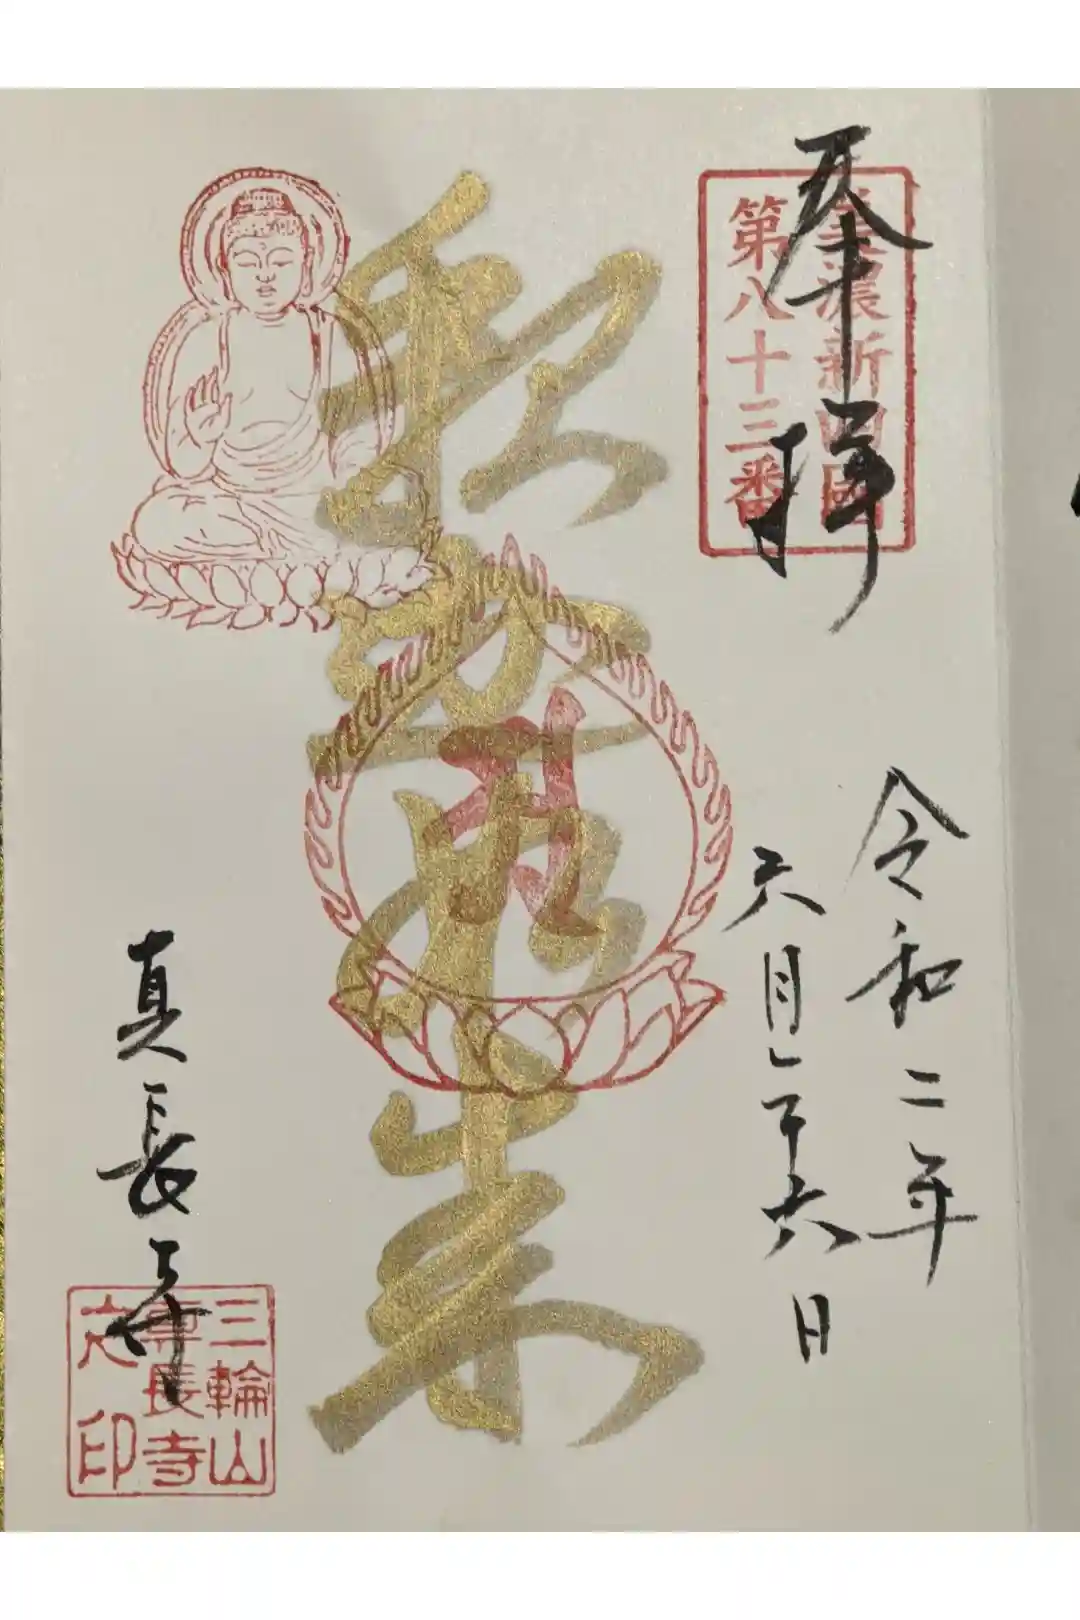 奉拝
美濃新四國
第八十三番
令和二年
六月二十六日
釈迦如来
真長寺
三輪山
眞長寺
之印